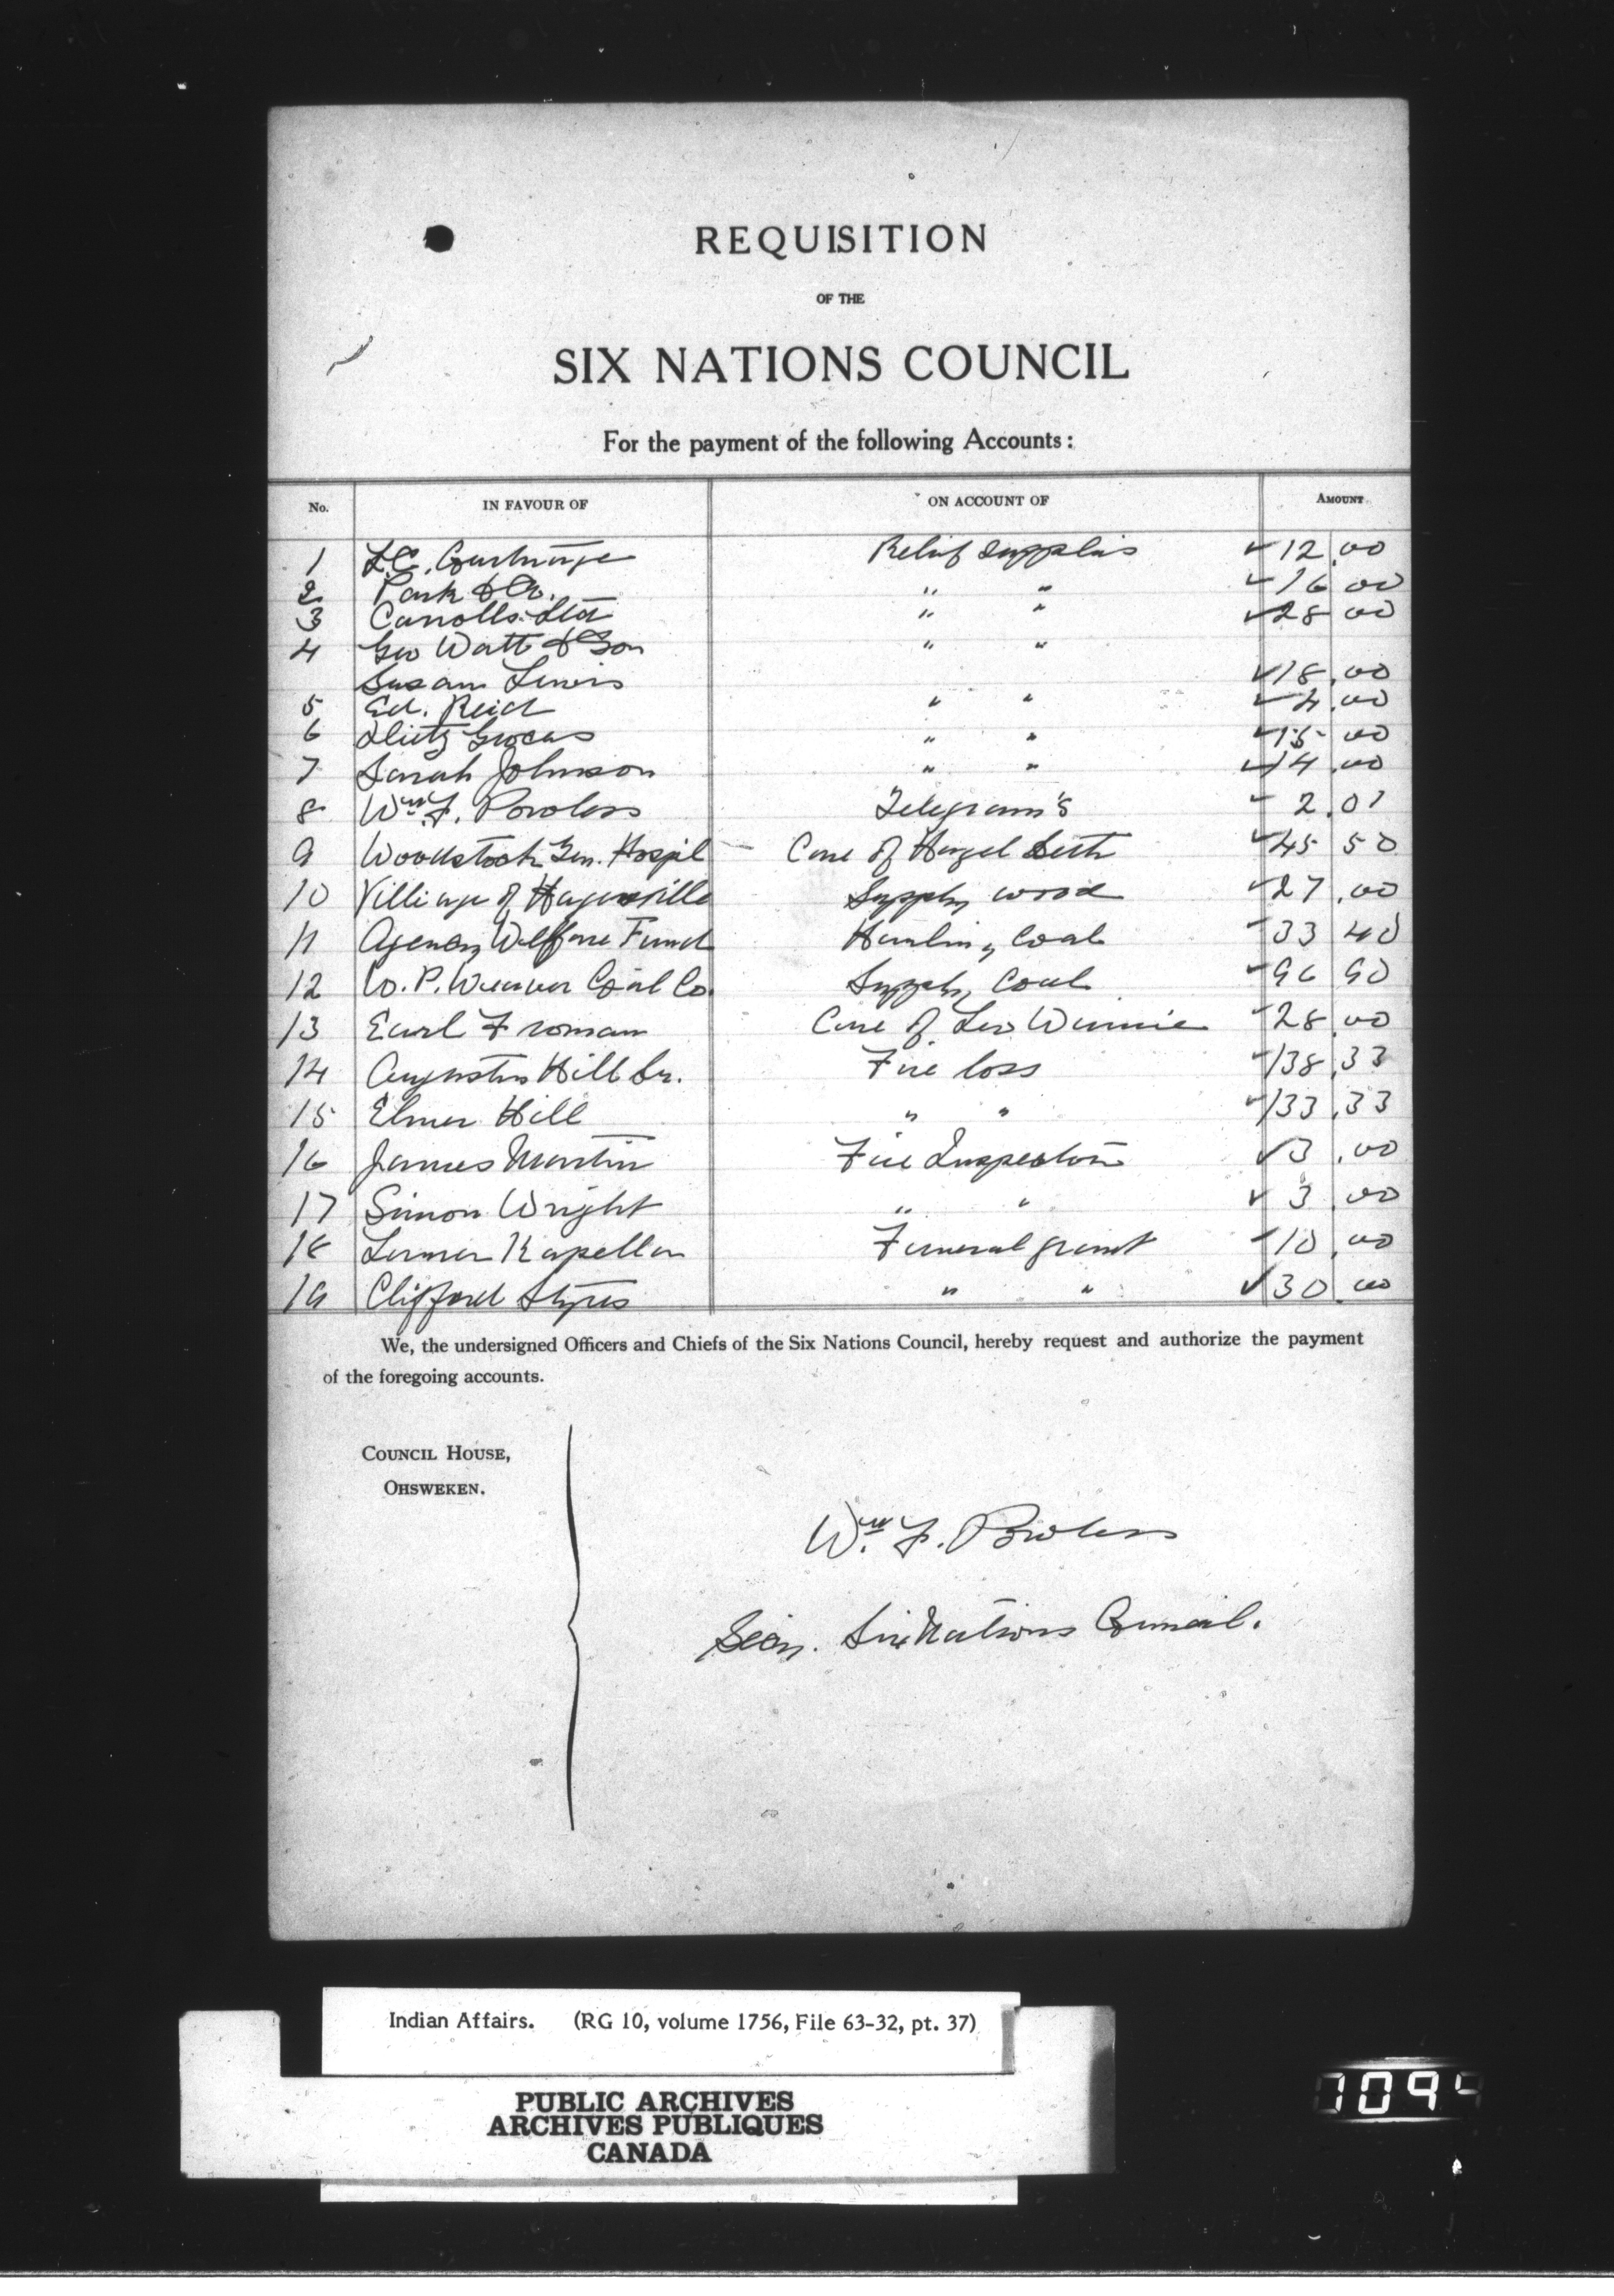 REQUISITION
OF THE
SIX NATIONS COUNCIL
For the payment of the following Accounts:
No. IN FAVOUR OF ON ACCOUNT OF AMOUNT
1 L.C. Relief Supplies ✓12.00
2 Park & Co. " " ✓16 00
3 Carrolls Ltd " " ✓28 00
4 Geo Watt & Son " "
Susan Lewis ✓18.00
5 Ed. Reid " " ✓4.00
6 Grocers " " ✓15.00
7 Sarah Johnson " " ✓14.00
8 Wm. F. Powless Telegram's ✓2.01
9 Woodstock Gen. Hospil Care of Hazel ✓45 50
10 Villiage of Hagersville Supply wood ✓27.00
11 Agency Welfare Fund Hauling Coal ✓33 40
12 W. P. Weaver Coal Co. Supply Coal ✓96 90
13 Earl Froman Care of Leo Winnie ✓28.00
14 Augustus Hill Sr. Fire loss ✓138.33
15 Elmer Hill " " ✓133.33
16 James Martin Fire Inspection ✓3.00
17 Simon Wright " " ✓3.00
18 Funeral grant ✓10.00
19 Clifford Styres " " ✓30.00
We, the undersigned Officers and Chiefs of the Six Nations Council, hereby request and authorize the payment
of the foregoing accounts.
COUNCIL HOUSE,
OHSWEKEN.
Wm. F. Powless
Secy. Six Nations Council.
Indian Affairs. (RG 10, volume 1756, File 63-32, pt. 37)
PUBLIC ARCHIVES
ARCHIVES PUBLIQUES
CANADA
1094